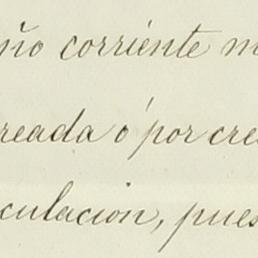 ño corriente m
reada ó por cre
culacion, pues